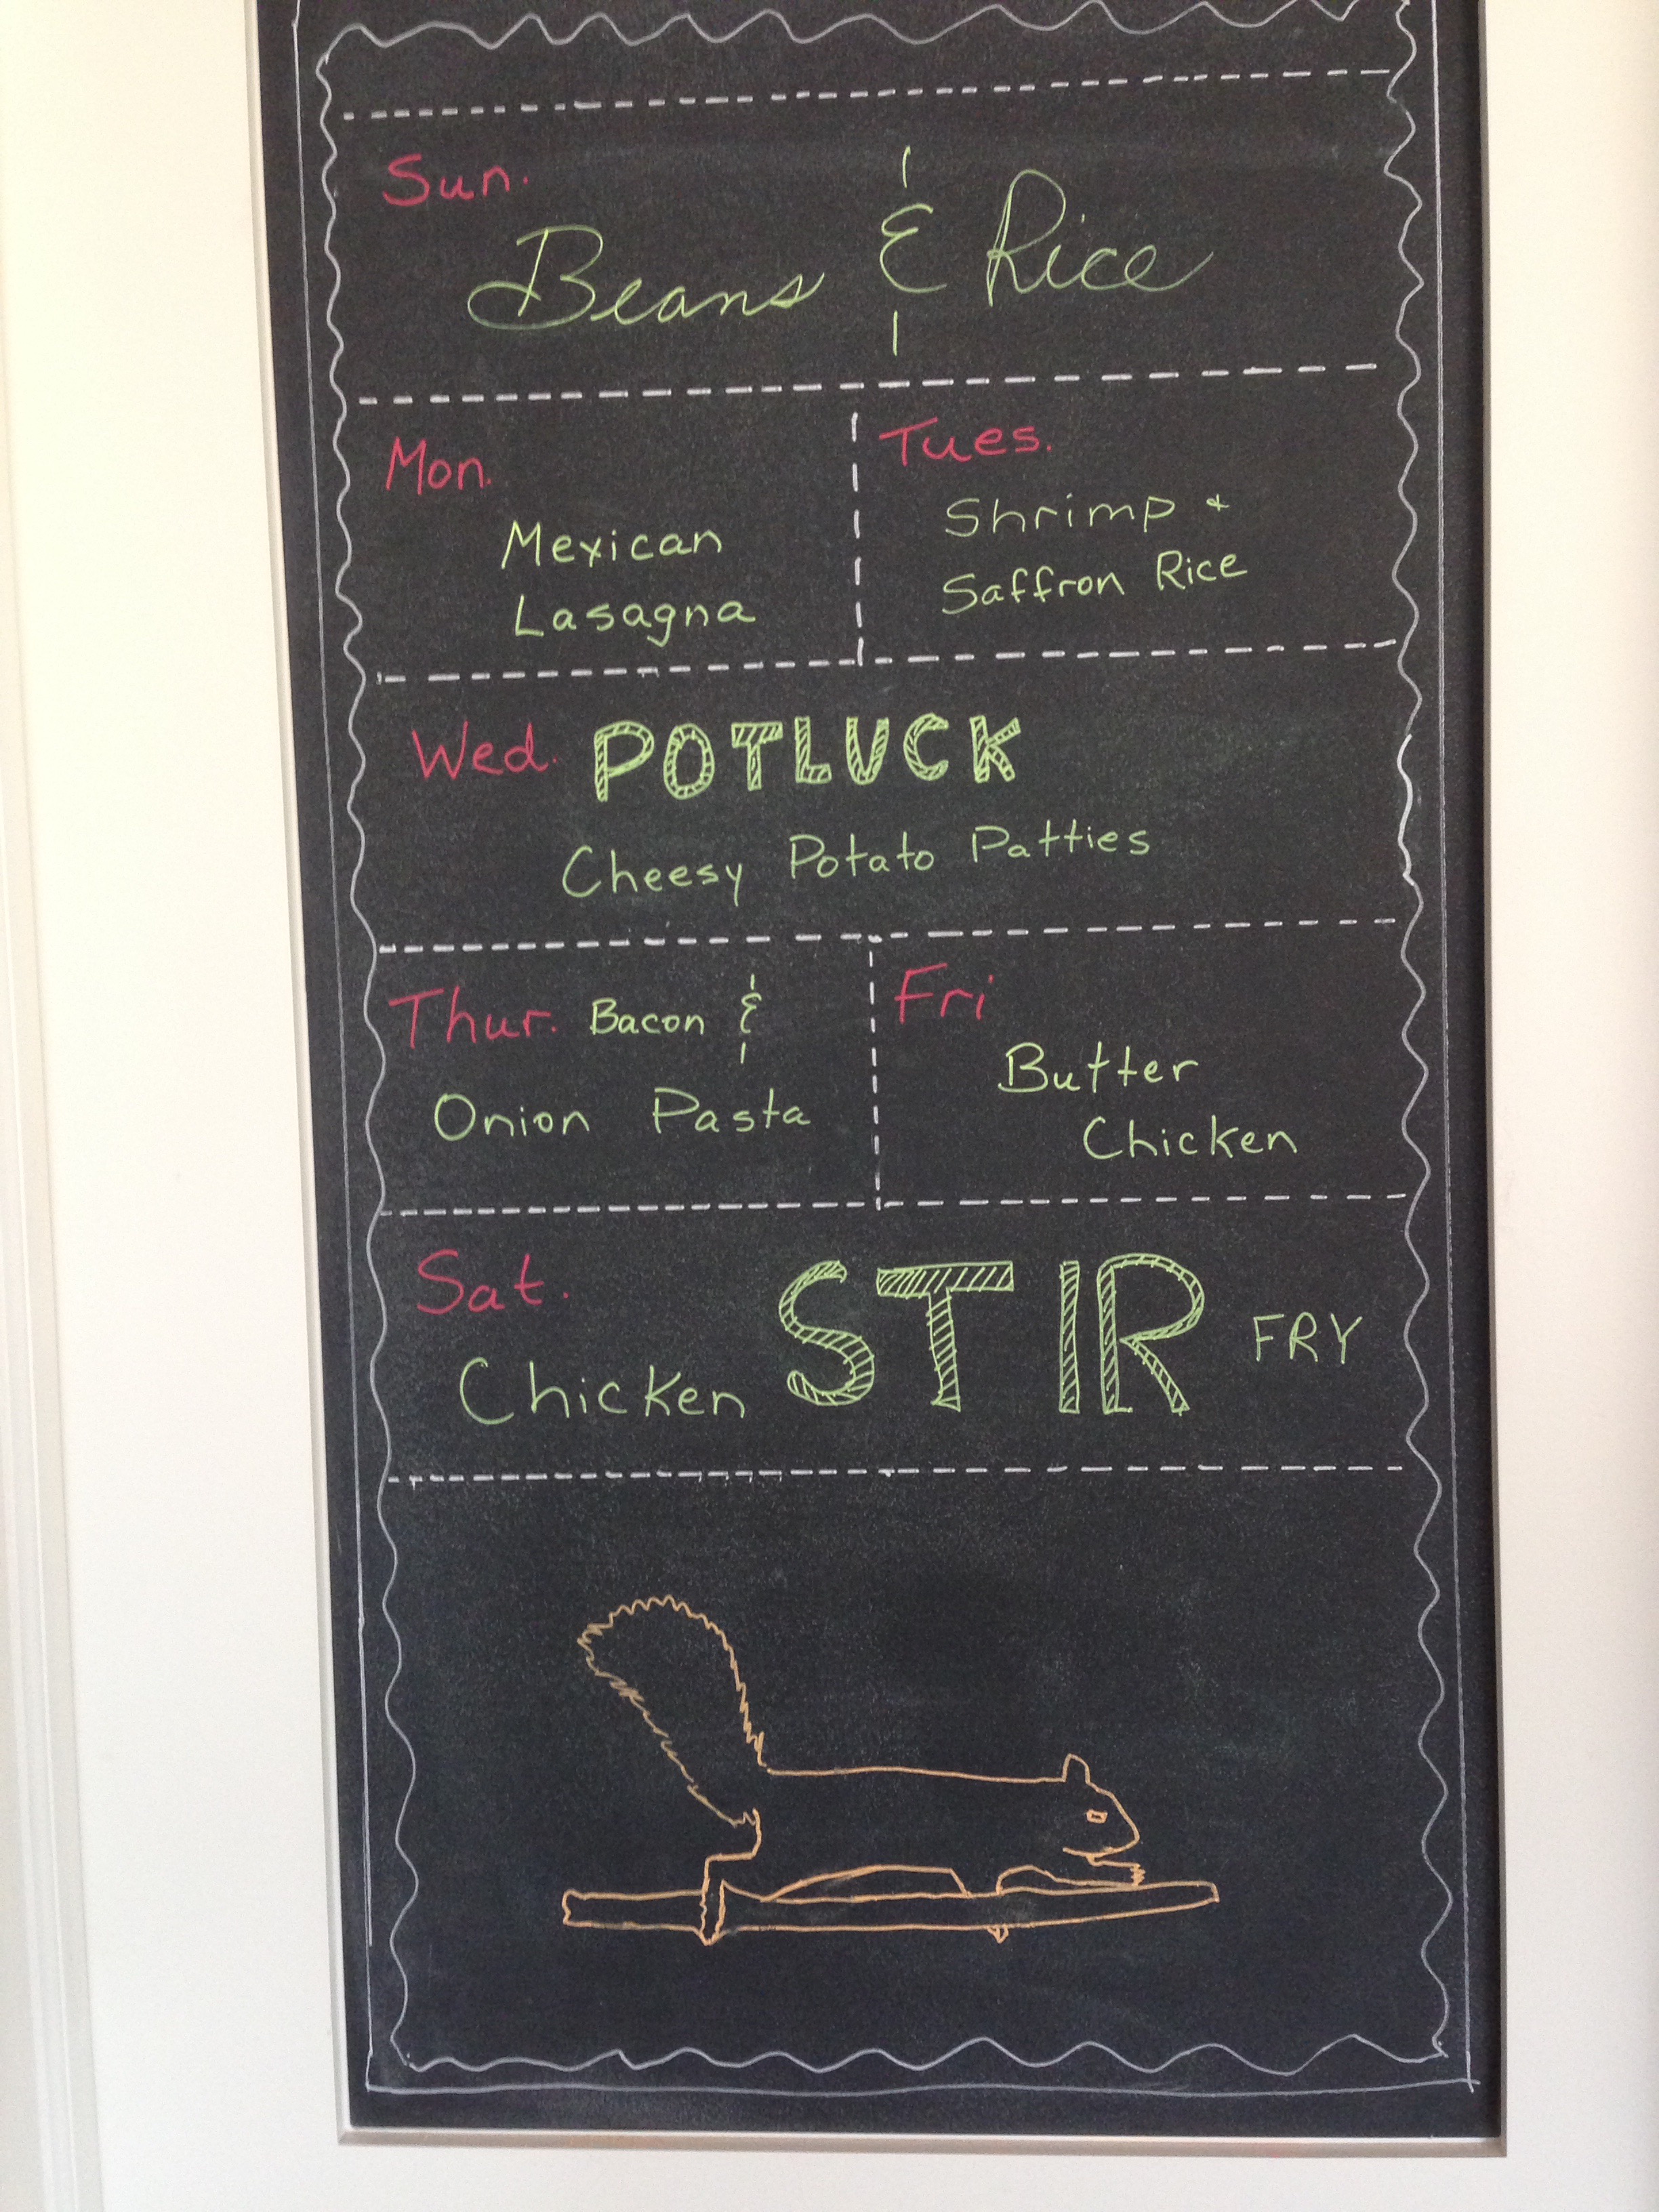 Sun.
Beans & Rice
Mon.
Mexican
Lasagna
Tues.
Shrimp &
Saffron Rice
Wed. POTLUCK
Cheesy Potato Patties
Thur. Bacon &
Onion Pasta
Fri
Butter
Chicken
Sat.
Chicken STIR FRY